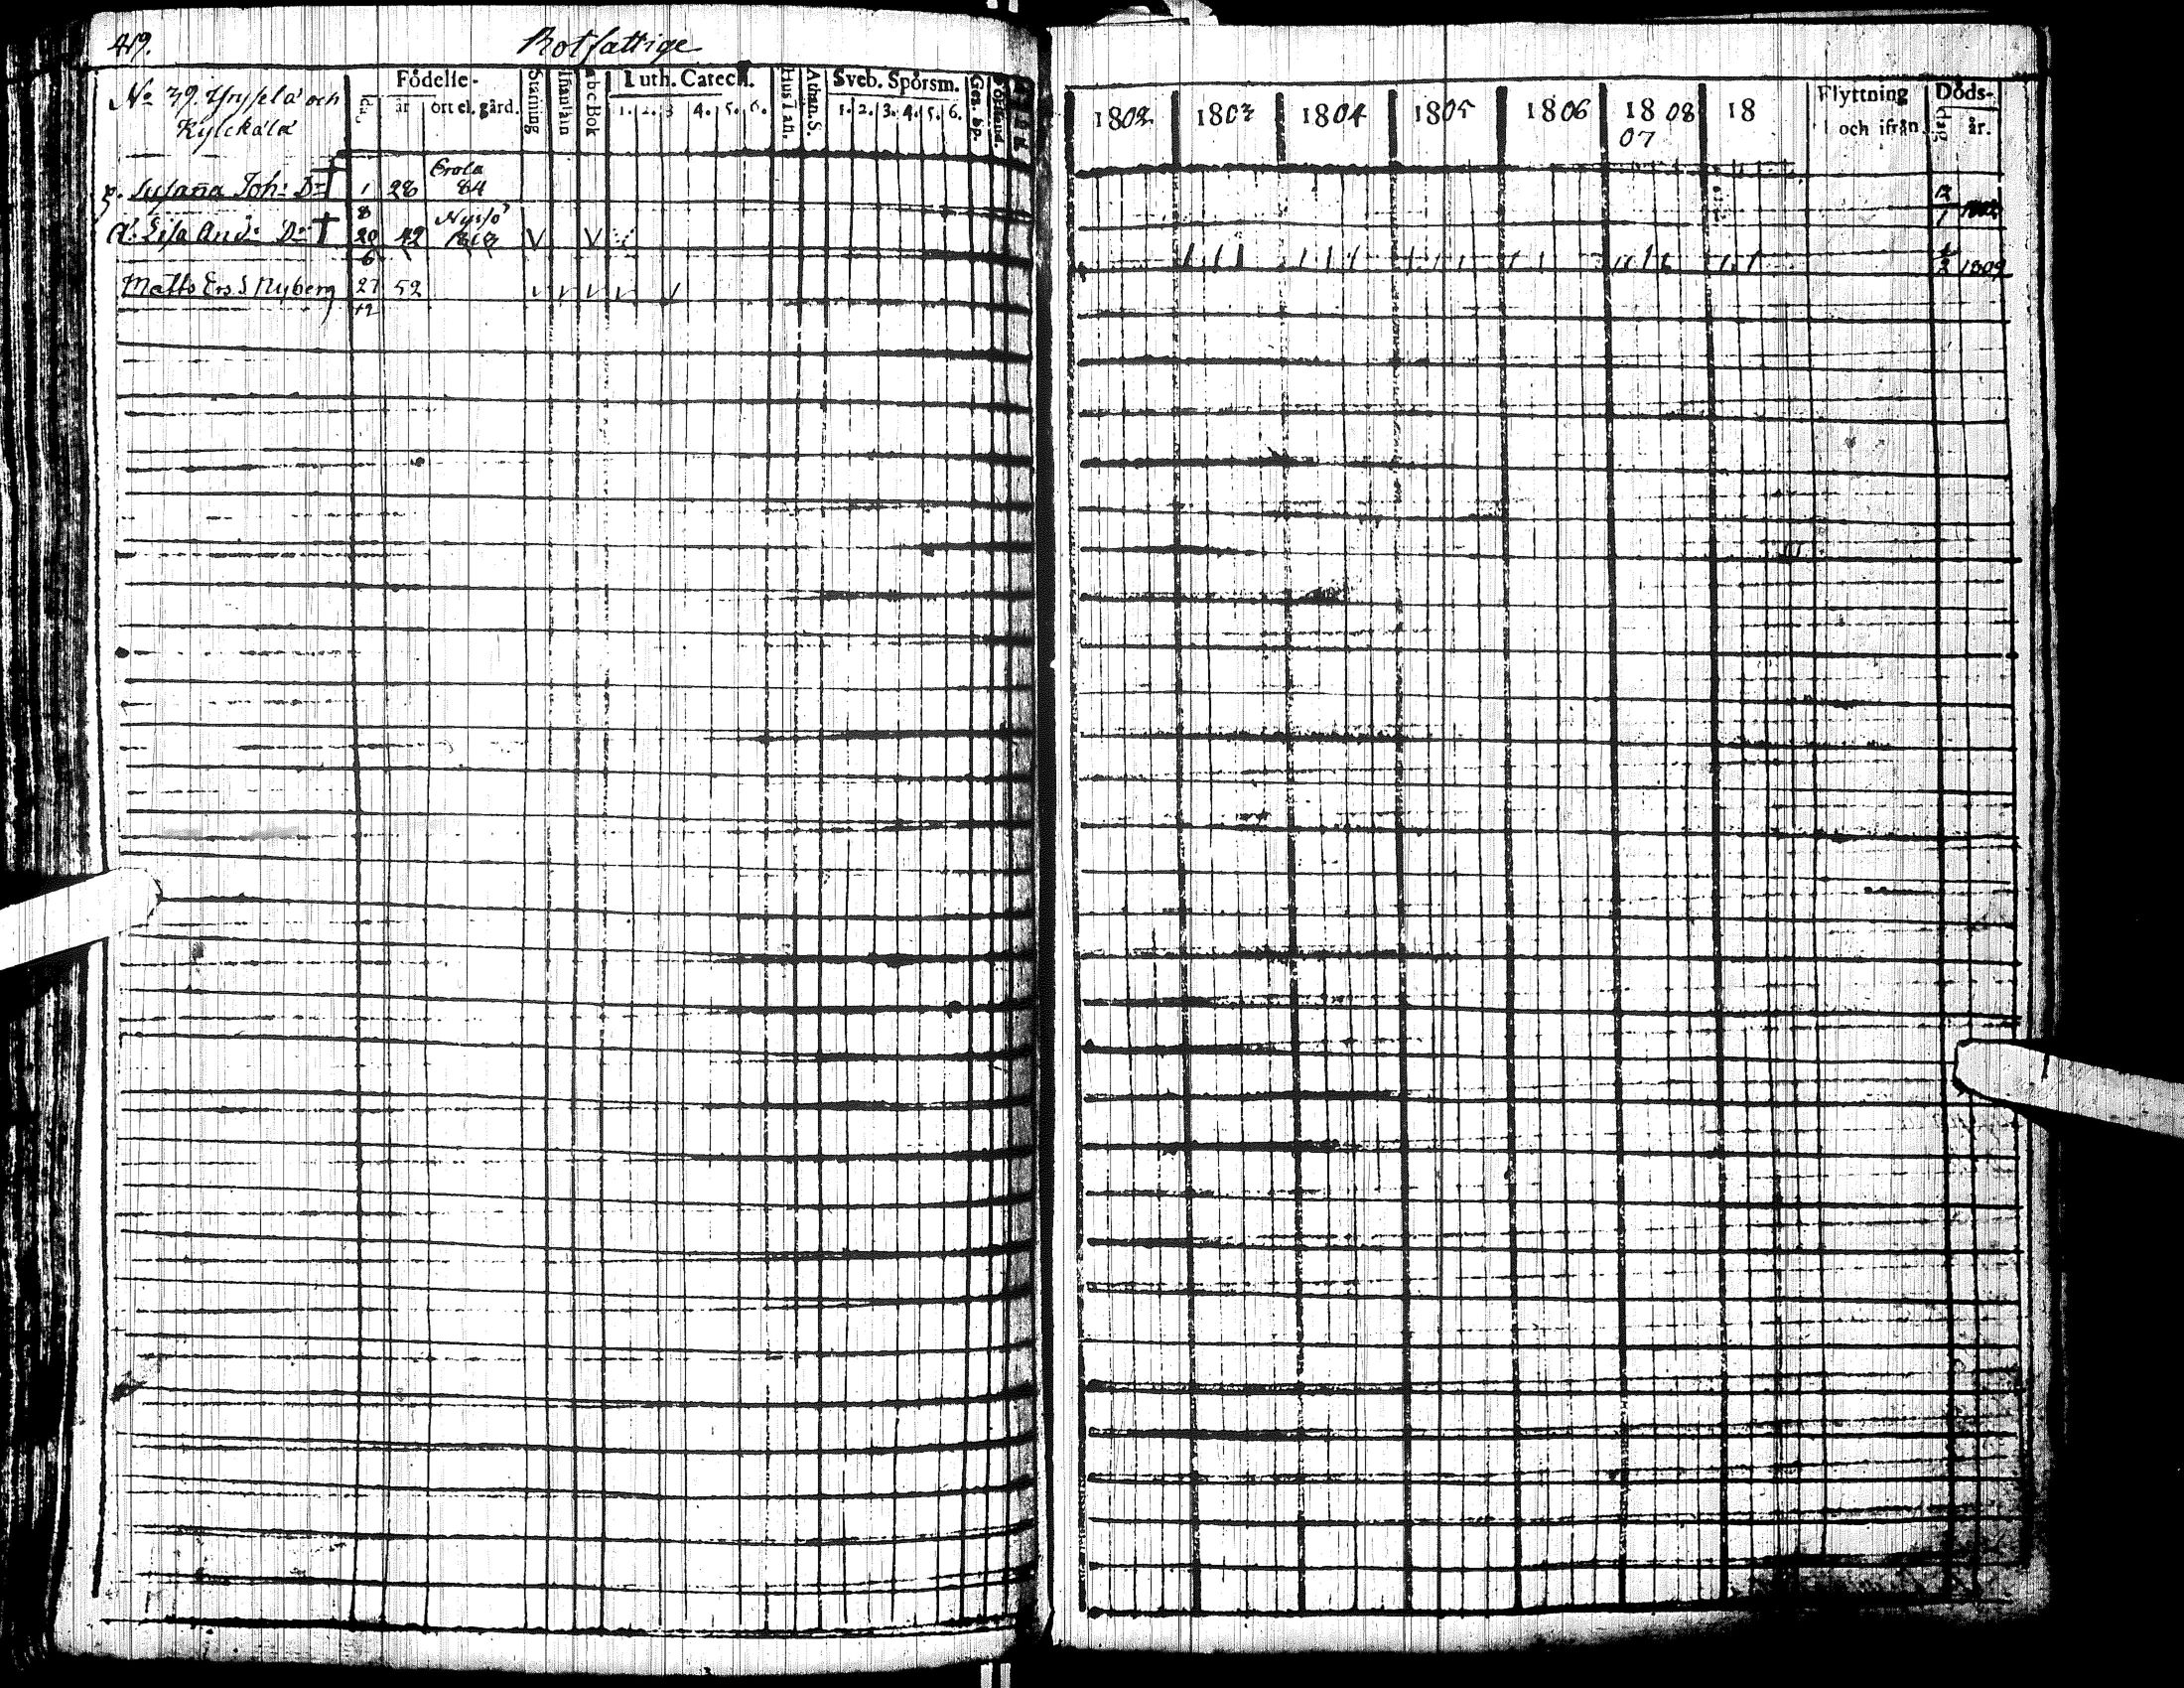 419.
Rotfattige
No 39. Yrjselä och
Kylckälä
Födelse-
år
ort el. gård.
Stafning
Innanläs
Abc Bok
Luth. Catech.
1. 2. 3 4. 5. 6.
Hus Tafl.
Athan. S.
Sveb. Spörsm.
1. 2. 3. 4. 5. 6.
Gez. bp.
1802 1803 1804 1805 1806 18 08 18
07
Flyttning
och ifrån
Döds-
dag
år.
p. Susaña Joh: D:r †
1
8
28
84
1802
A: Lisa And: D:r †
20
6
42
2
1809
Matts Ers. S Nyberg
27
12
52